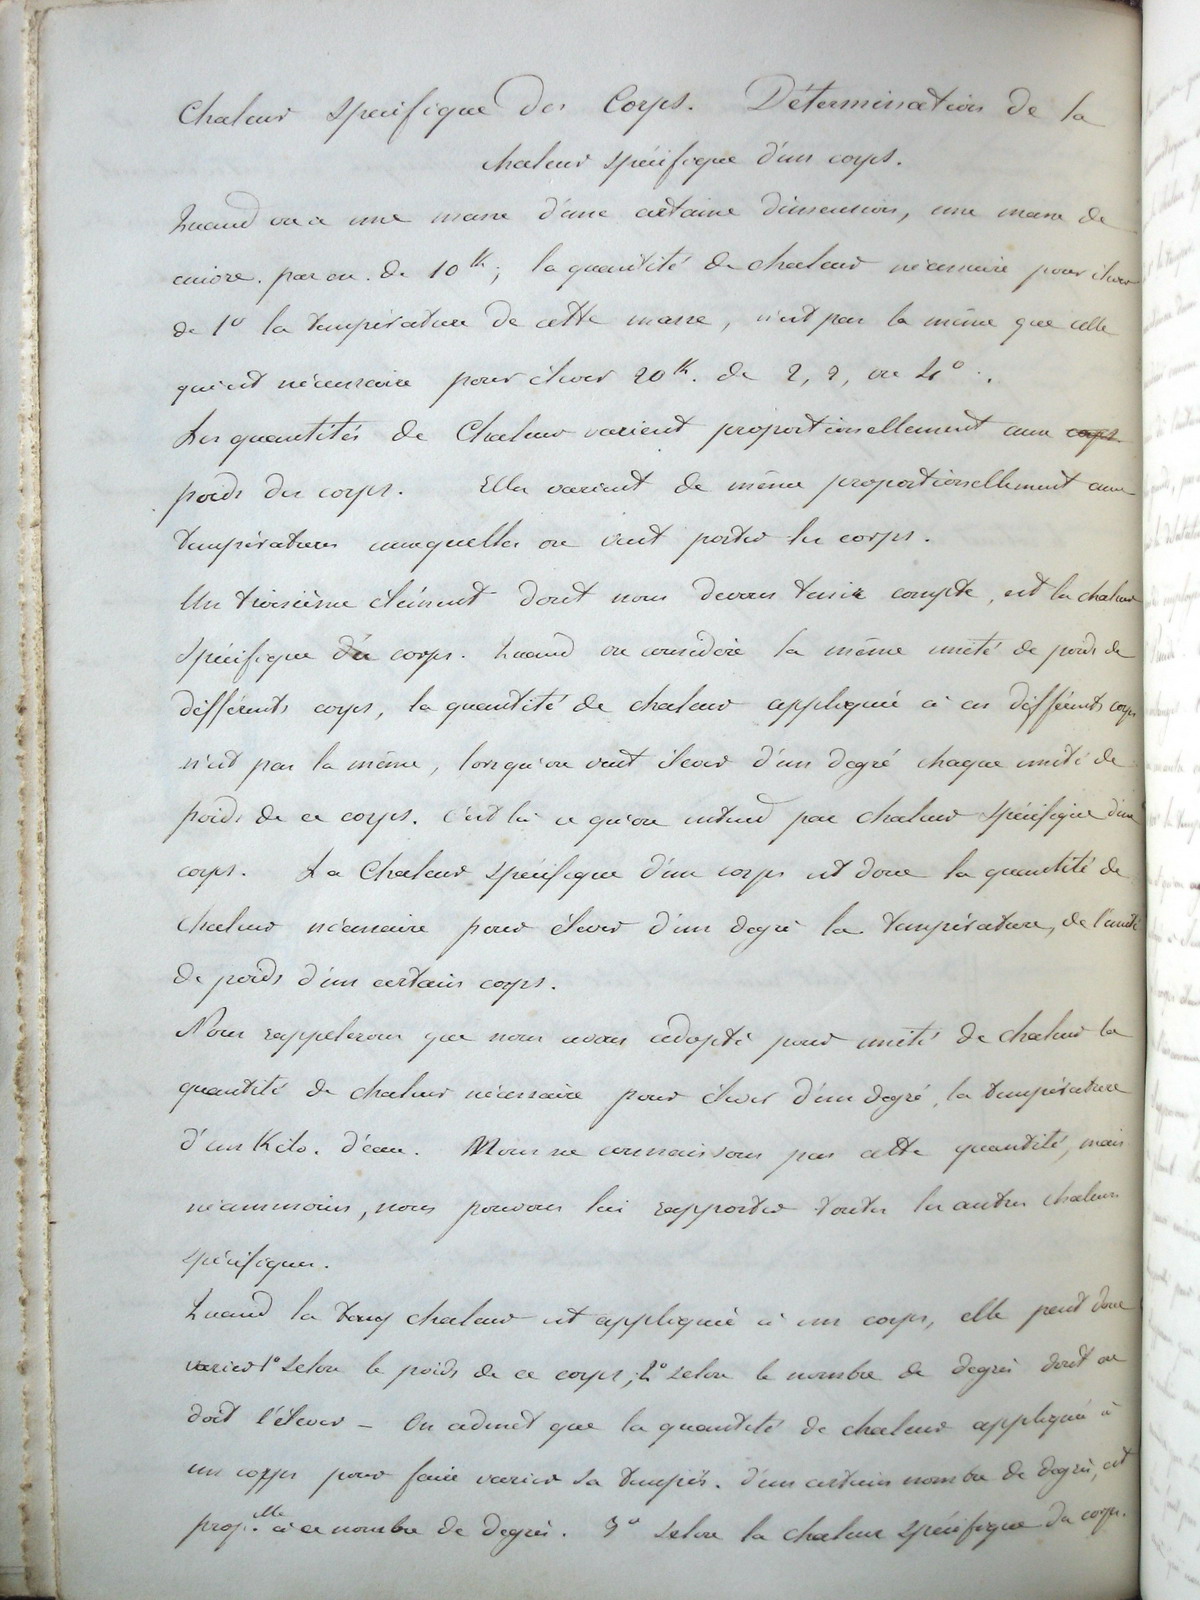 Chaleur spécifique des Corps. Détermination de la
chaleur spécifique d'un corps.
Quand on a une masse d'une certaine dimension, une masse de
cuivre. par ex. de 10k; la quantité de chaleur nécessaire pour élever
de 1° la température de cette masse, n'est pas la même que celle
qui est nécessaire pour élever 20k. de 2, 3, ou 4°.
Les quantités de Chaleur varient proportionellement aux corps
poids des corps. Elles varient de même proportionellement aux
températures auxquelles on veut porter les corps.
Un troisième élément dont nous devons tenir compte, est la chaleur
spécifique du corps. Quand on considère la même unité de poids de
différents corps, la quantité de chaleur appliquée à ces différents corps
n'est pas la même, lorsqu'on veut élever d'un degré chaque unité de
poids de ce corps. C'est là ce qu'on entend par chaleur spécifique d'un
corps. La Chaleur spécifique d'un corps est donc la quantité de
chaleur nécessaire pour élever d'un degré la température, de l'unité
de poids d'un certain corps.
Nous rappelerons que nous avons adopté pour unité de chaleur la
quantité de chaleur nécessaire pour élever d'un degré, la température
d'un Kilo. d'eau. Nous ne connaissons pas cette quantité, mais
néanmoins, nous pouvons lui rapporter toutes les autres chaleurs
spécifiques.
Quand la chaleur est appliquée à un corps, elle peut donc
varier 1° selon le poids de ce corps; 2° selon le nombre de degrés dont on
doit l'élever – On admet que la quantité de chaleur appliquée à
un corps pour faire varier sa tempér. d'un certain nombre de degrés, est
prop.lle à ce nombre de degrés. 3° selon la chaleur spécifique du corps.